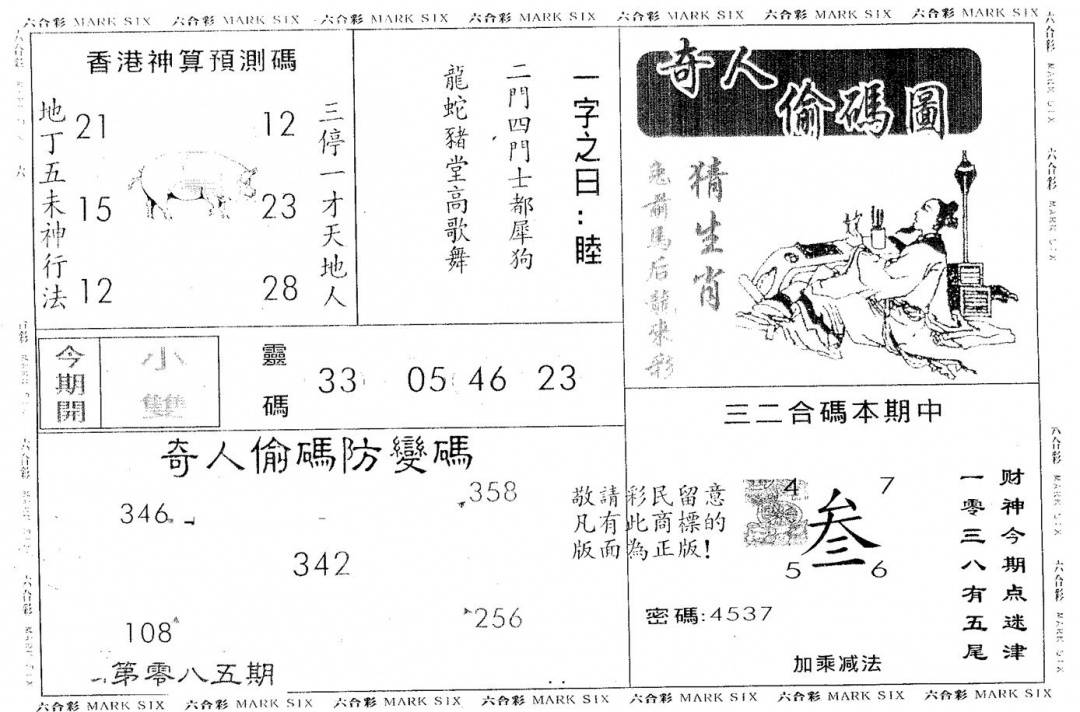 六合彩 MARK SIX 六合彩 MARK SIX 六合彩 MARK SIX 六合彩 MARK SIX 六合彩 MARK SIX 六合彩 MARK SIX 六合彩 MARK SIX
香港神算預測碼
地丁五未神行法
21
15
12
12
23
28
三停一才天地人
一字之曰:睦
二門四門士都犀狗
龍蛇豬堂高歌舞
奇人
偷碼圖
猜生肖
兔前馬后龍來彩
今期開
小
雙
靈碼
33 05 46 23
奇人偷碼防變碼
346
358
342
108
256
第零八五期
三二合碼本期中
敬請彩民留意
凡有此商標的
版面為正版!
4
7
叁
5
6
密碼:4537
加乘减法
财神今期点迷津
一零三八有五尾
六合彩 MARK SIX 六合彩 MARK SIX 六合彩 MARK SIX 六合彩 MARK SIX 六合彩 MARK SIX 六合彩 MARK SIX 六合彩 MARK SIX